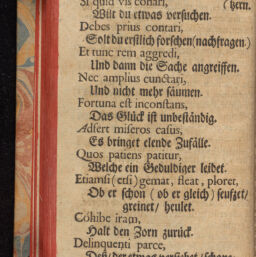 Si quid vis conari, (tzern.
Wilt du etwas versuchen.
Debes prius contari,
Solt du erstlich forschen (nachfragen)
Et tunc rem aggredi,
Und dann die Sache angreiffen.
Nec amplius cunctari,
Und nicht mehr säumen.
Fortuna est inconstans,
Das Glück ist unbeständig.
Adfert miseros casus,
Es bringet elende Zufälle.
Quos patiens patitur,
Welche ein Geduldiger leidet.
Etiamsi (etsi) gemat, fleat, ploret,
Ob er schon (ob er gleich) seufzet/
greinet/ heulet.
Cohibe iram,
Halt den Zorn zurück.
Delinquenti parce,